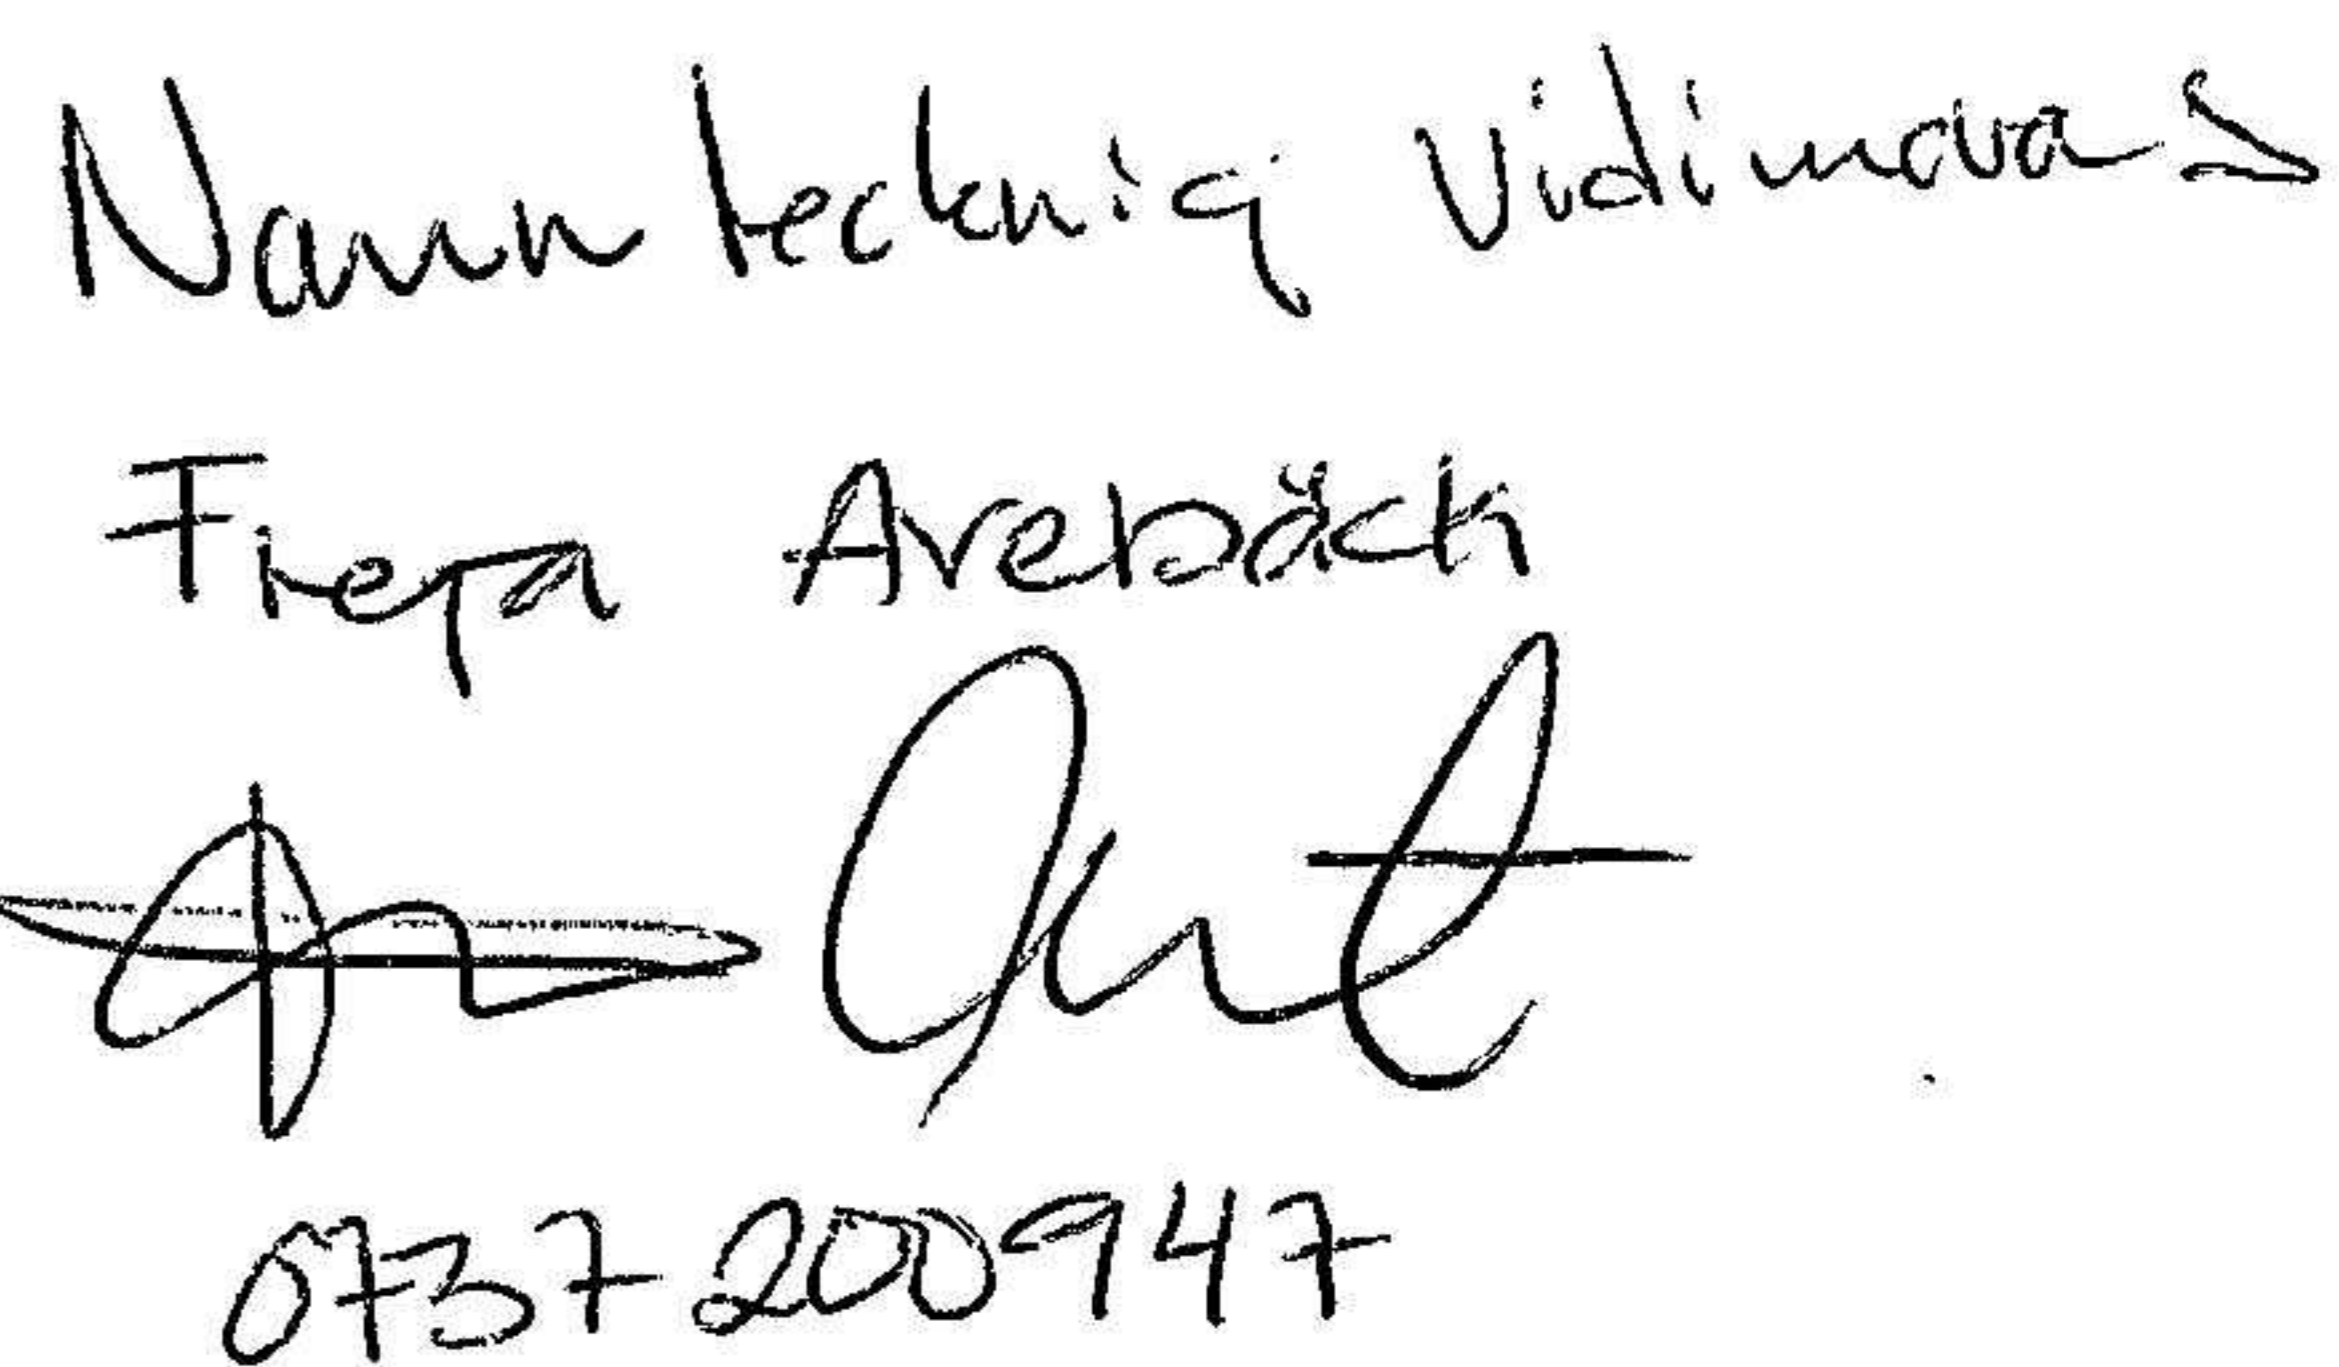 Namnteckning Vidimeras
Freja Arebäck
0737200947